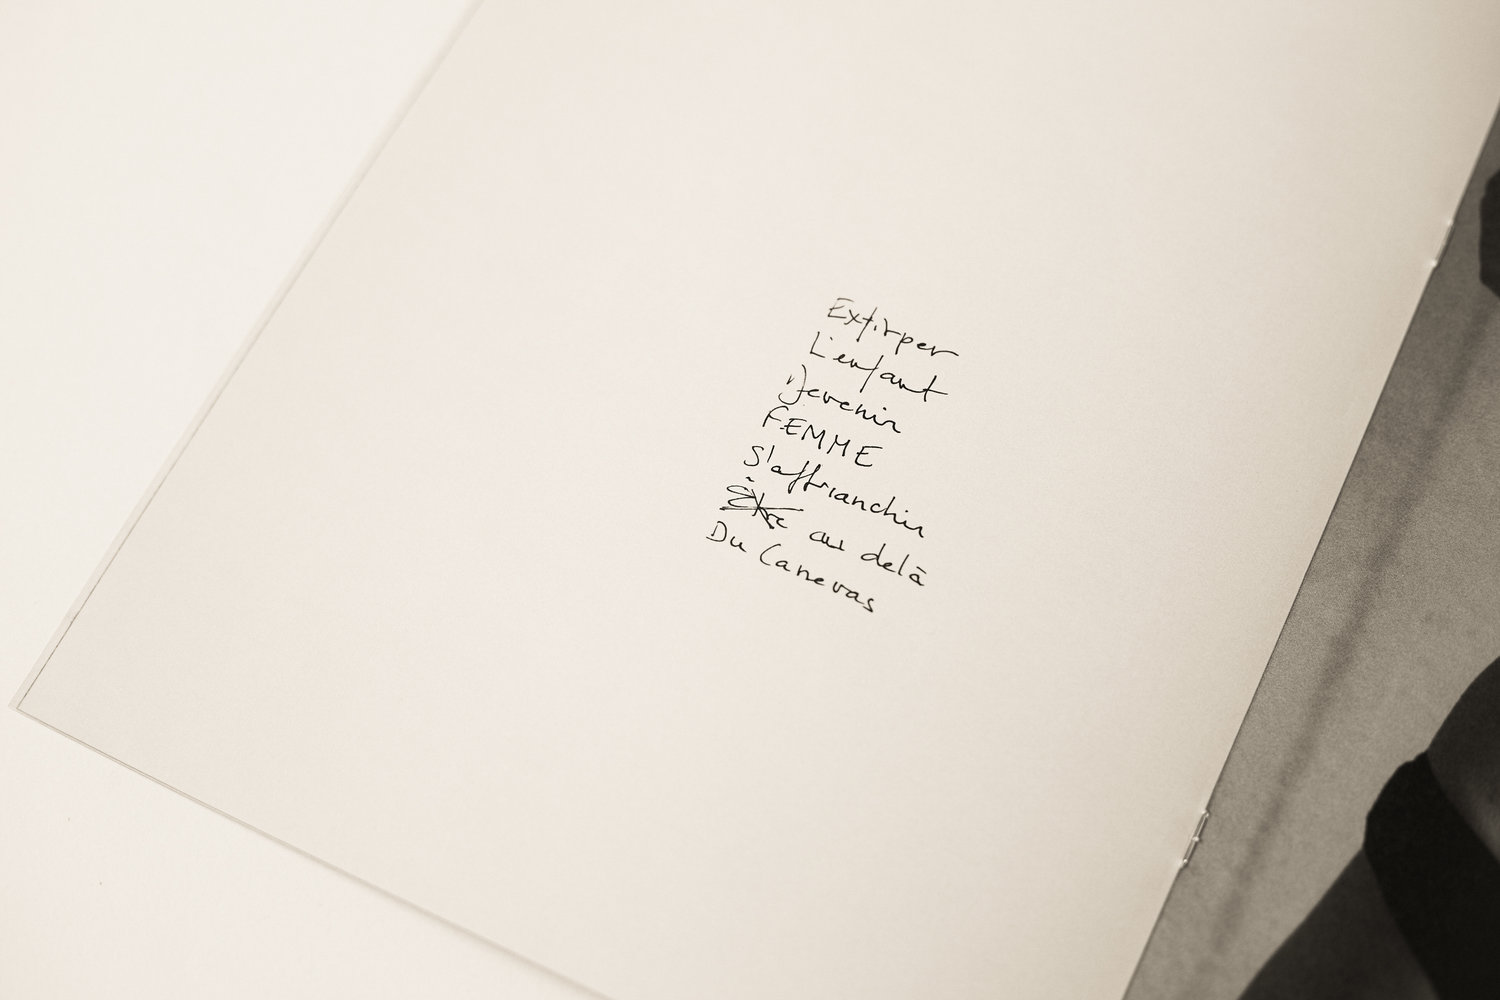 Extirper
L'enfant
Devenir
FEMME
S'affranchir
Être au delà
Du Canevas